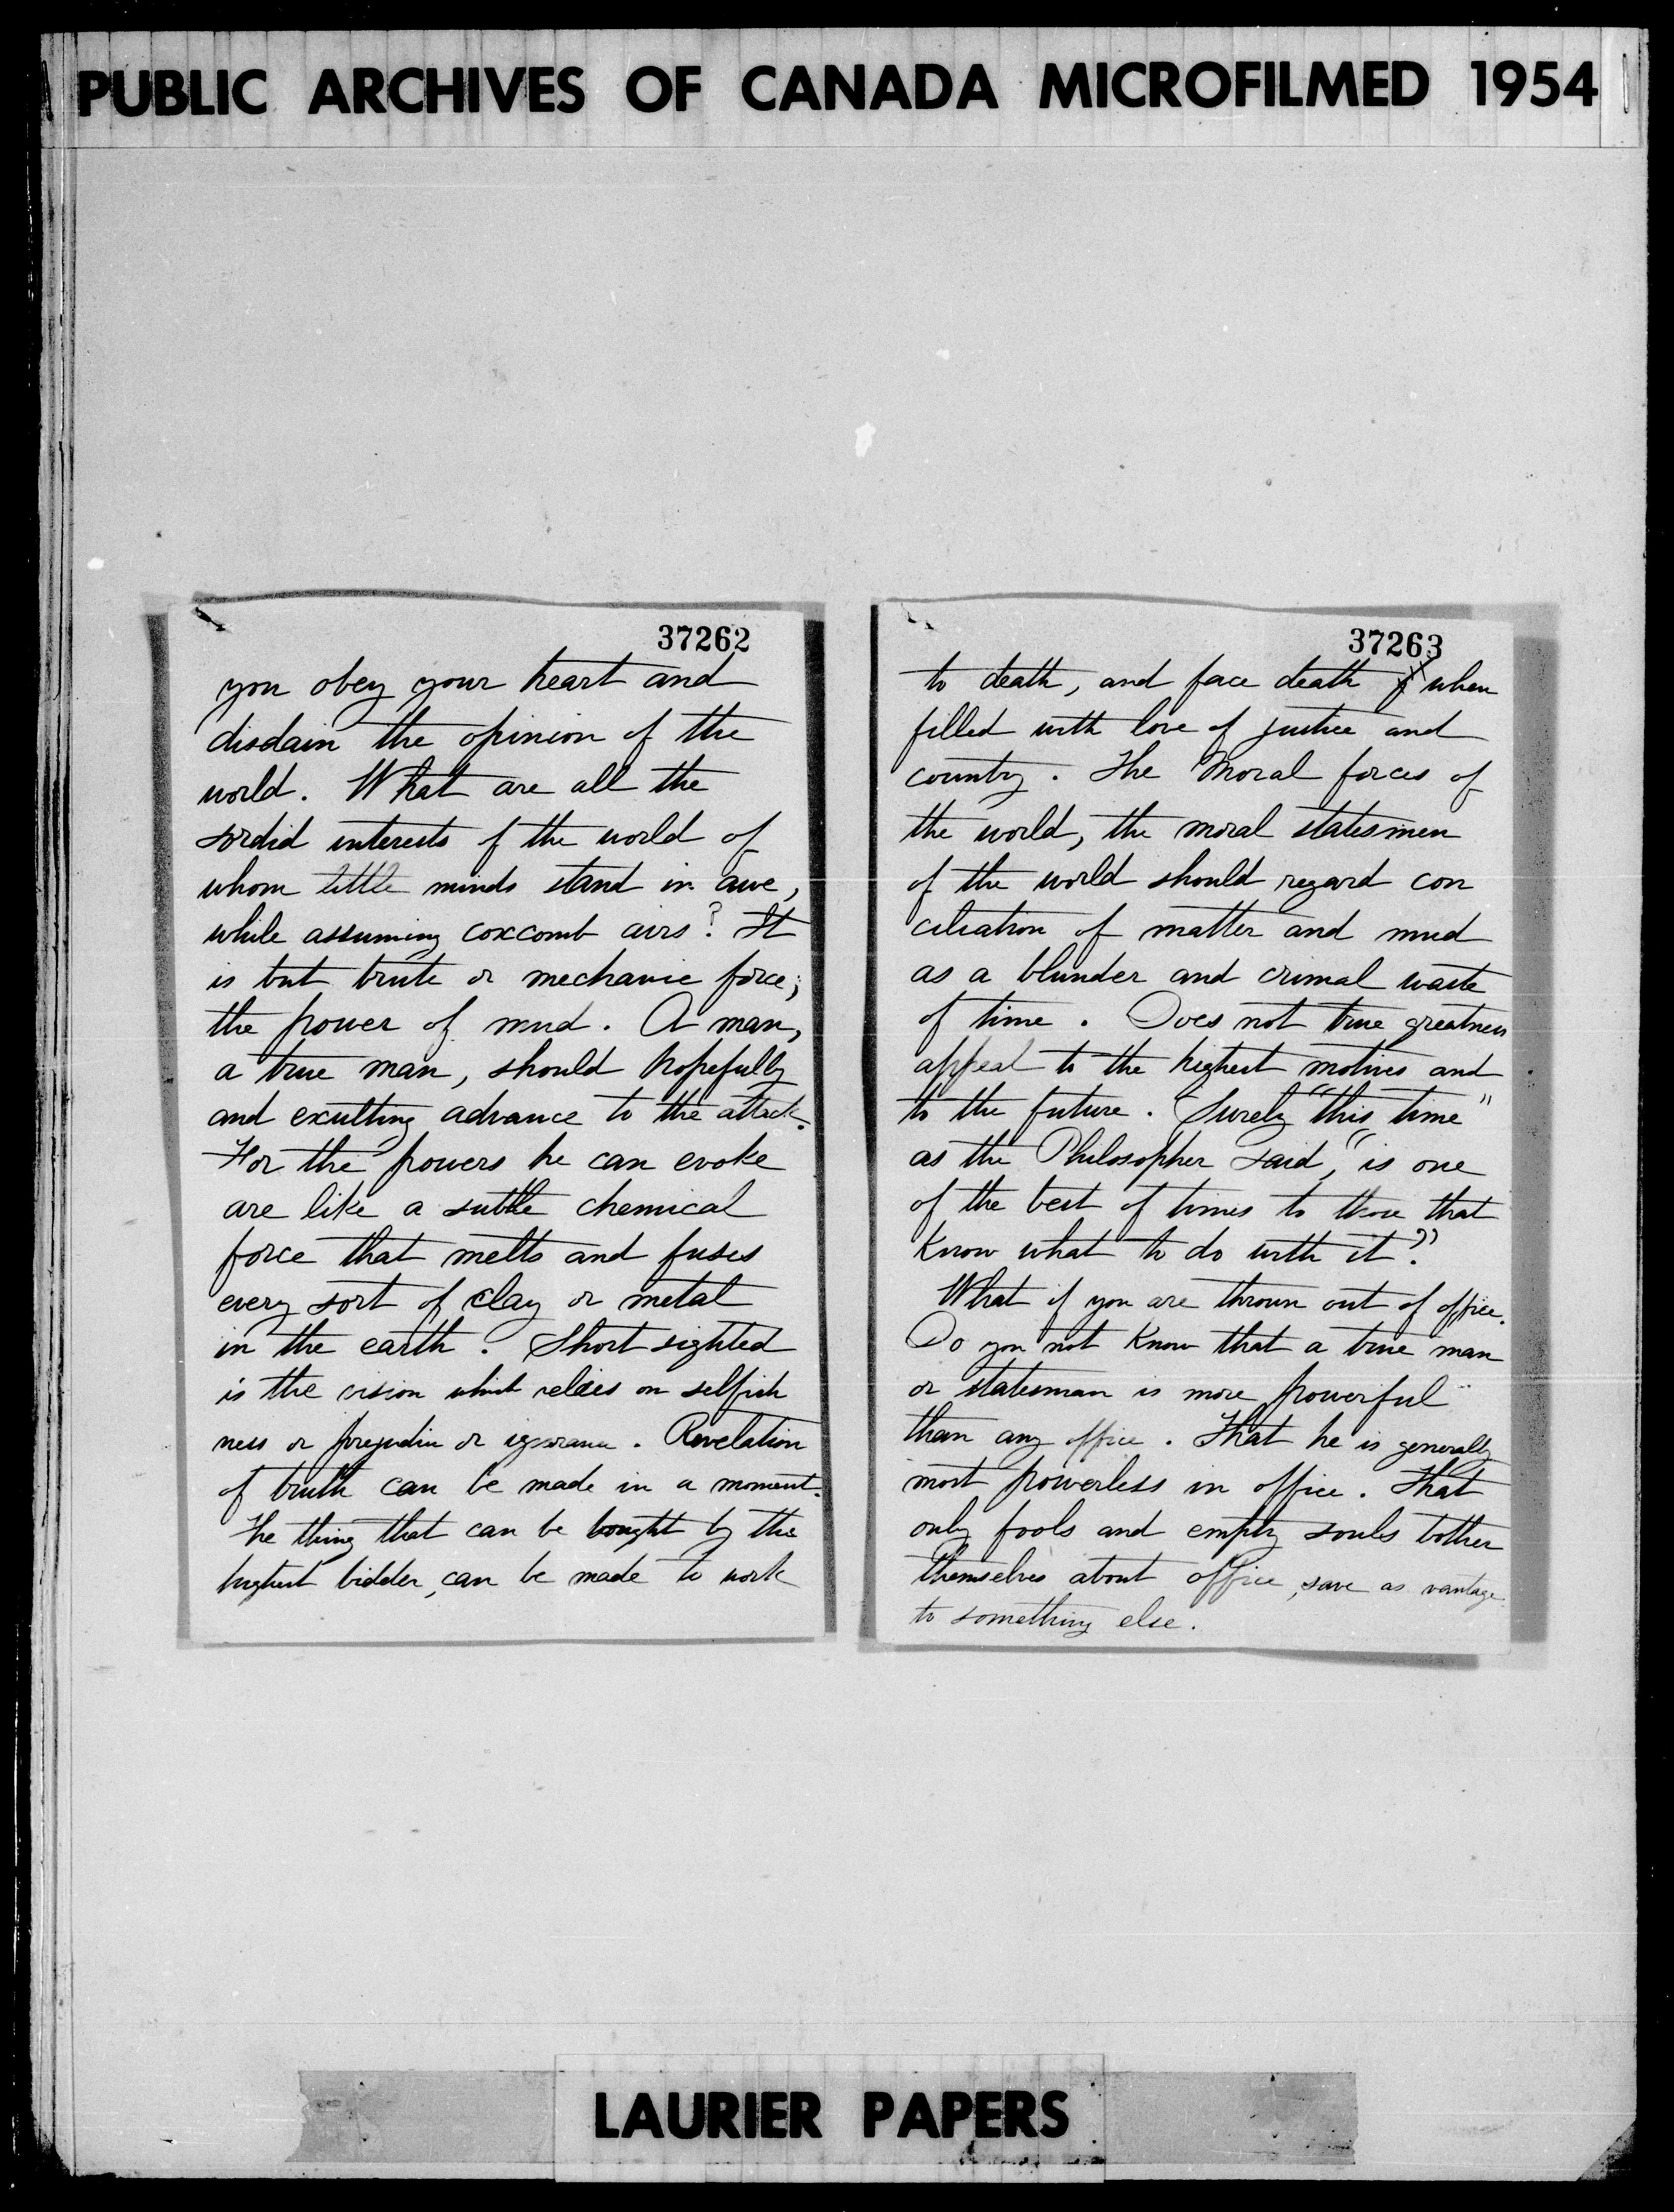 PUBLIC ARCHIVES OF CANADA MICROFILMED 1954
37262
you obey your heart and
disdain the opinion of the
world. What are all the
sordid interests of the world of
whom little minds stand in awe,
while assuming coxcomb airs? It
is but brute or mechanic force;
the power of mud. A man,
a true man, should hopefully
and exulting advance to the attack.
For the powers he can evoke
are like a subtle chemical
force that melts and fuses
every sort of clay or metal
in the earth. Short sighted
is the vision which relies on selfish
ness or prejudice or ignorance. Revelation
of truth can be made in a moment.
The thing that can be bought by the
highest bidder, can be made to work
37263
to death, and face death when
filled with love of justice and
country. The Moral forces of
the world, the moral statesmen
of the world should regard con
ciliation of matter and mud
as a blunder and crimal waste
of time. Does not true greatness
appeal to the highest motives and
to the future. Surely "this time"
as the Philosopher said, "is one
of the best of times to those that
know what to do with it?"
What if you are thrown out of office.
Do you not know that a true man
or statesman is more powerful
than any office. That he is generally
most powerless in office. That
only fools and empty souls bother
themselves about office, save as vantage
to something else.
LAURIER PAPERS